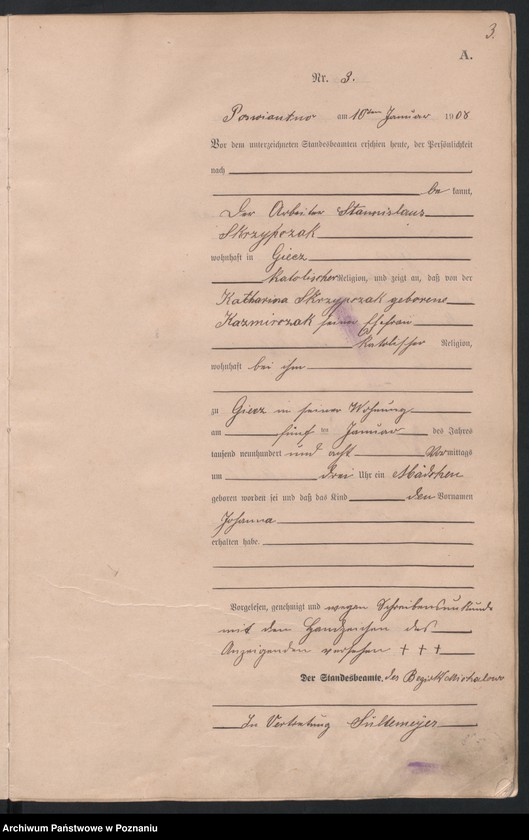 3.
A.
Nr. 3.
am 10ten Januar 1908
Vor dem unterzeichneten Standesbeamten erschien heute, der Persönlichkeit
nach
be kannt,
Der Arbeiter Stanislaus
Skrzypczak
wohnhaft in Giecz
katolischer Religion, und zeigt an, daß von der
Katharina Skrzypczak geborene
Kazmirczak seiner Ehefrau
katolischer Religion,
wohnhaft bei ihm
zu Giecz in seiner Wohnung
am fünf ten Januar des Jahres
tausend neunhundert und acht Vormittags
um drei Uhr ein Mädchen
geboren worden sei und daß das Kind den Vornamen
Johanna
erhalten habe.
Vorgelesen, genehmigt und wegen Schreibensunkunde
mit den Handzeichen des
Anzeigenden versehen + + +
Der Standesbeamte. des Bezirks
In Vertretung Sultemeyer
Archiwum Państwowe w Poznaniu